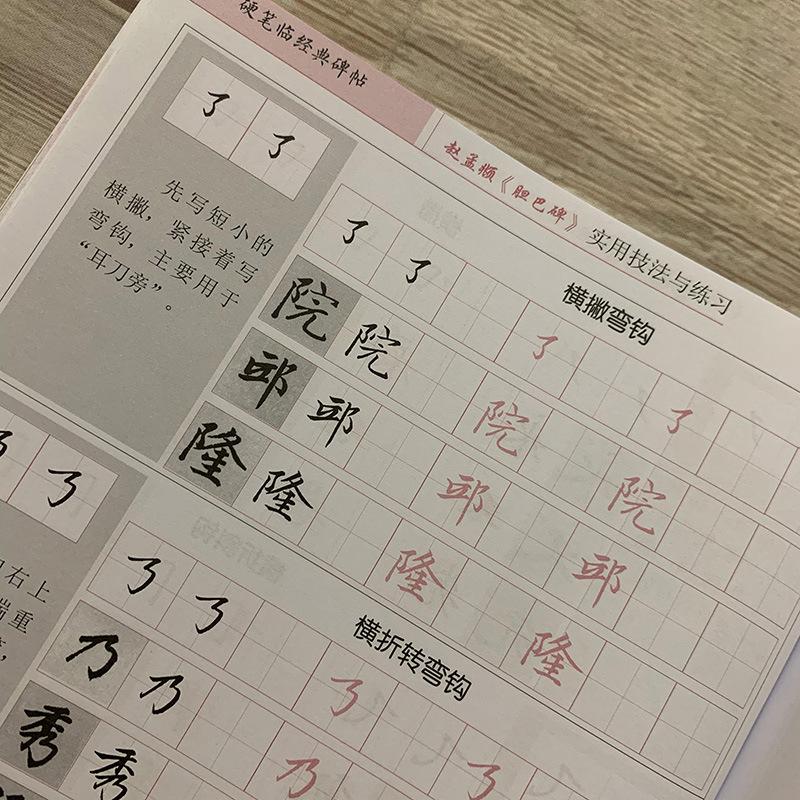 硬笔临经典碑帖
赵孟頫《胆巴碑》实用技法与练习
先写短小的
横撇，紧接着写
弯钩，主要用于
“耳刀旁”。
横撇弯钩
院 院 院 院
邱 邱 邱 邱
隆 隆 隆 隆
右上
端重
横折转弯钩
乃 乃 乃
秀 秀